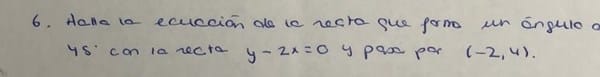 6. Halla la ecuación de la recta que forma un ángulo d
45° con la recta y-2x=0 y pasa por (-2,4).